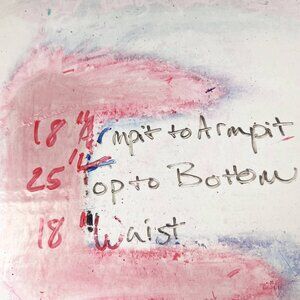 18" Armpit to Armpit
25" Top to Bottom
18" Waist